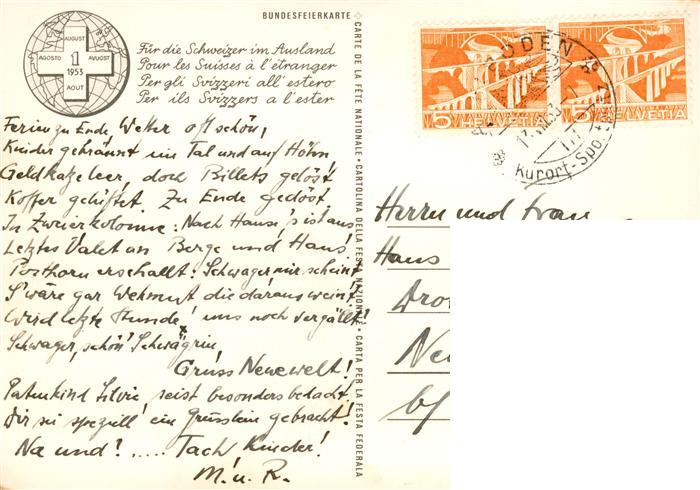 BUNDESFEIERKARTE
AUGUST
AGOSTO 1 AVUOST
1953
AOUT
Für die Schweizer im Ausland
Pour les Suisses à l'étranger
Per gli Svizzeri all'estero
Per ils Svizzers a l'ester
Ferien zu Ende, Wetter oft schön,
Kinder gebrännt im Tal und auf Höhn,
Geldkatze leer, doch Billets gelöst
Koffer gelüftet Zu Ende gedöst
In Zweierkolonne: Nach Hause, 's ist aus
Letztes Valet an Berge und Haus!
Posthorn erschallt: Schwager mir scheint
S'wäre gar Wehmut die daraus weint!
Wird letzte Stunde! uns noch vergällt?
Schwager, schön' Schwägrin,
Gruss Neuewelt!
Patenkind Silvie seist besonders bedacht,
Dir sei speziell ein Grüsslein gebracht!
Na und? ..... Tach Kinder!
M. u. R.
CARTE DE LA FÊTE NATIONALE · CARTOLINA DELLA FESTA NAZIONALE · CARTA PER LA FESTA FEDERALA
5 HELVETIA
5 HELVETIA
13.VIII.53
Kurort-Sport
Herrn und Frau
Hans